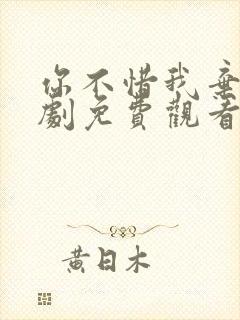 你不惜我棄
劇免費觀看
黃日木